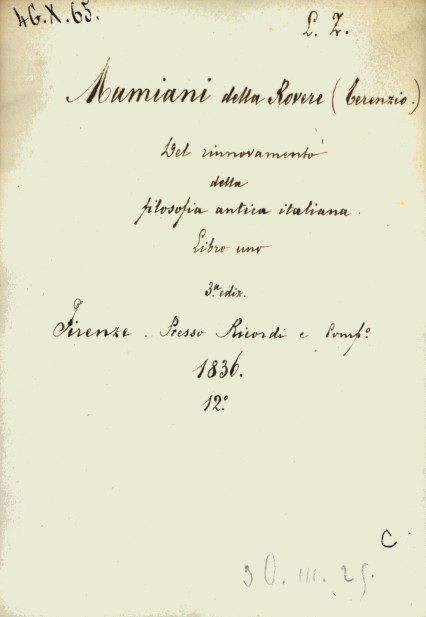 4G.X.65.
L. Z.
Mamiani della Rovere (Terenzio.)
Del rinnovamento
della
filosofia antica italiana.
Libro uno
3.ª ediz.
Firenze. Presso Ricordi e Comp.º
1836.
12.º
C.
30.III.25.